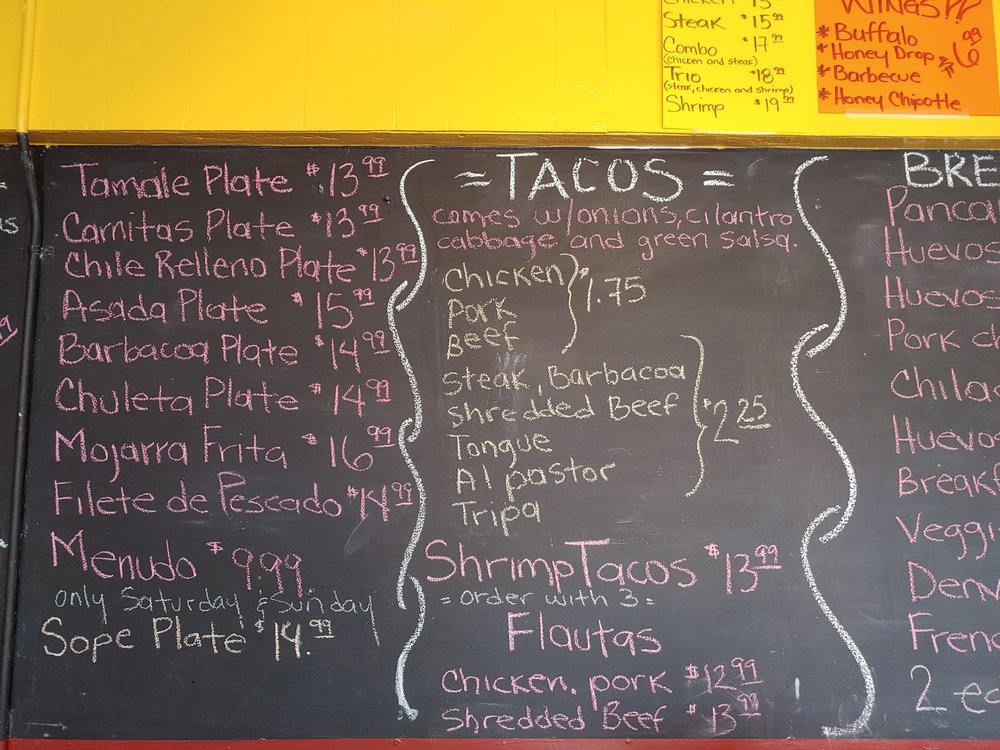 Steak $15.99
Combo $17.99
(chicken and steak)
Trio $18.99
(steak, chicken and shrimp)
Shrimp $19.99
WINGS!!!
* Buffalo
* Honey Drop $6.99
* Barbecue
* Honey Chipotle
Tamale Plate $13.99
Carnitas Plate $13.99
Chile Relleno Plate $13.99
Asada Plate $15.99
Barbacoa Plate $14.99
Chuleta Plate $14.99
Mojarra Frita $16.99
Filete de Pescado $14.99
Menudo $9.99
only Saturday & Sunday
Sope Plate $14.99
= TACOS =
comes w/onions, cilantro
cabbage and green salsa.
Chicken
Pork $1.75
Beef
Steak, Barbacoa
Shredded Beef $2.25
Tongue
Al pastor
Tripa
Shrimp Tacos $13.99
= order with 3 =
Flautas
Chicken. pork $12.99
Shredded Beef $13.99
BRE
Panca
Huevos
Huevos
Pork ch
Chilaq
Huevos
Breakf
Veggi
Denv
Frenc
2 eg